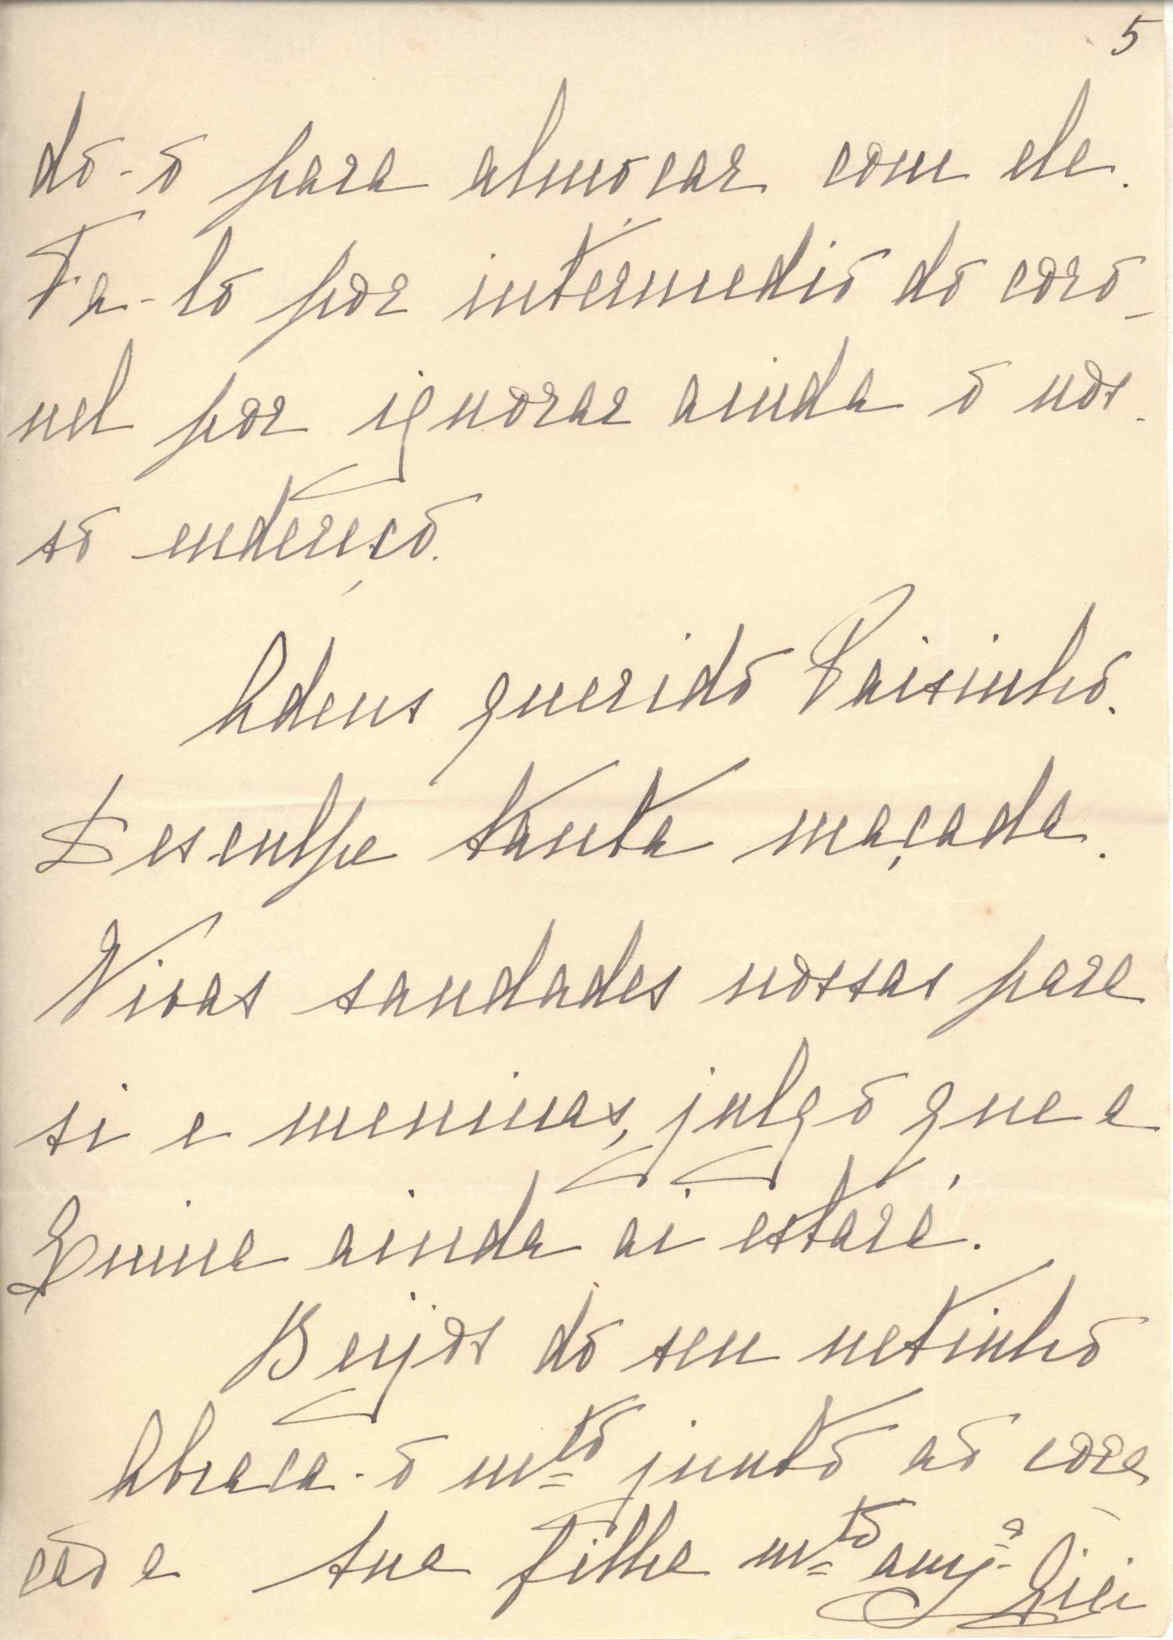 5
do-o para almoçar com ele.
Fa-lo por intermedio do coro-
nel por ignorar ainda o nos-
so endereço.
Adeus querido Paisinho.
Desculpe tanta maçada.
Vivas saudades nossas para
si e meninas, julgo que a
Emina ainda ai estará.
Beijos do seu netinho
Abraça-o mto junto ao cora-
ção a sua filha mto amga